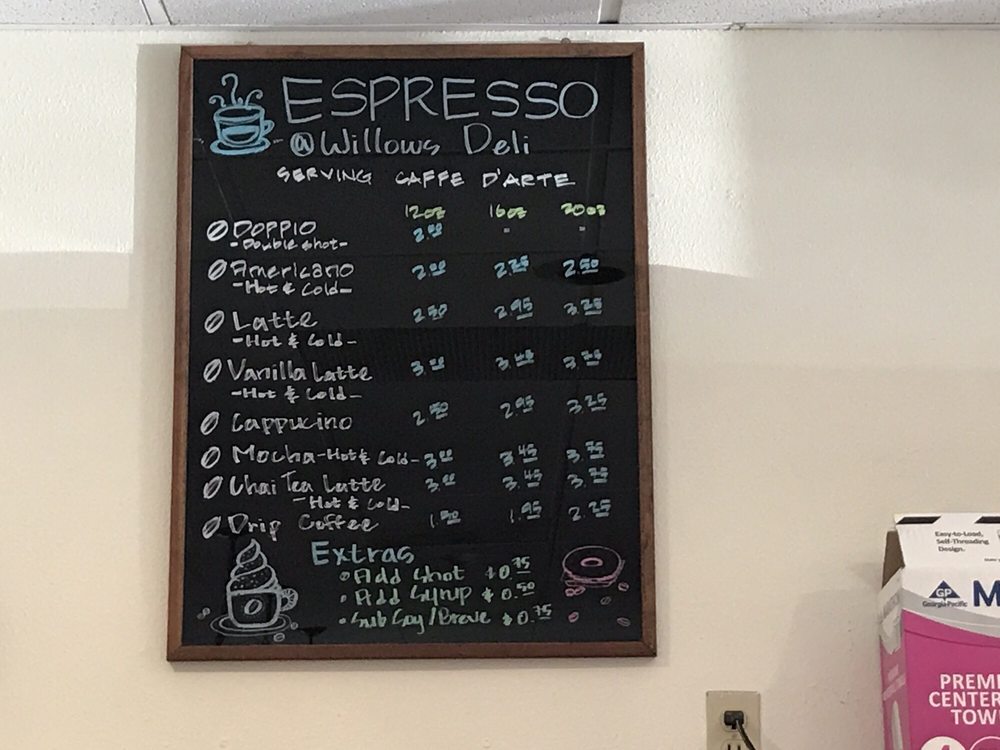 ESPRESSO
@Willows Deli
SERVING CAFFE D'ARTE
12oz 16oz 20oz
DOPPIO 2.00 - -
-Double Shot-
Americano 2.00 2.25 2.50
-Hot & Cold-
Latte 2.50 2.95 3.25
-Hot & Cold-
Vanilla Latte 3.00 3.45 3.75
-Hot & Cold-
Cappucino 2.50 2.95 3.25
Mocha-Hot & Cold- 3.00 3.45 3.75
Chai Tea Latte 3.00 3.45 3.75
-Hot & Cold-
Drip Coffee 1.50 1.95 2.25
Extras
Add Shot $0.75
Add Syrup $0.50
Sub Soy/Breve $0.75
Easy-to-Load,
Self-Threading
Design.
GP
Georgia-Pacific
M
PREMI
CENTER
TOW